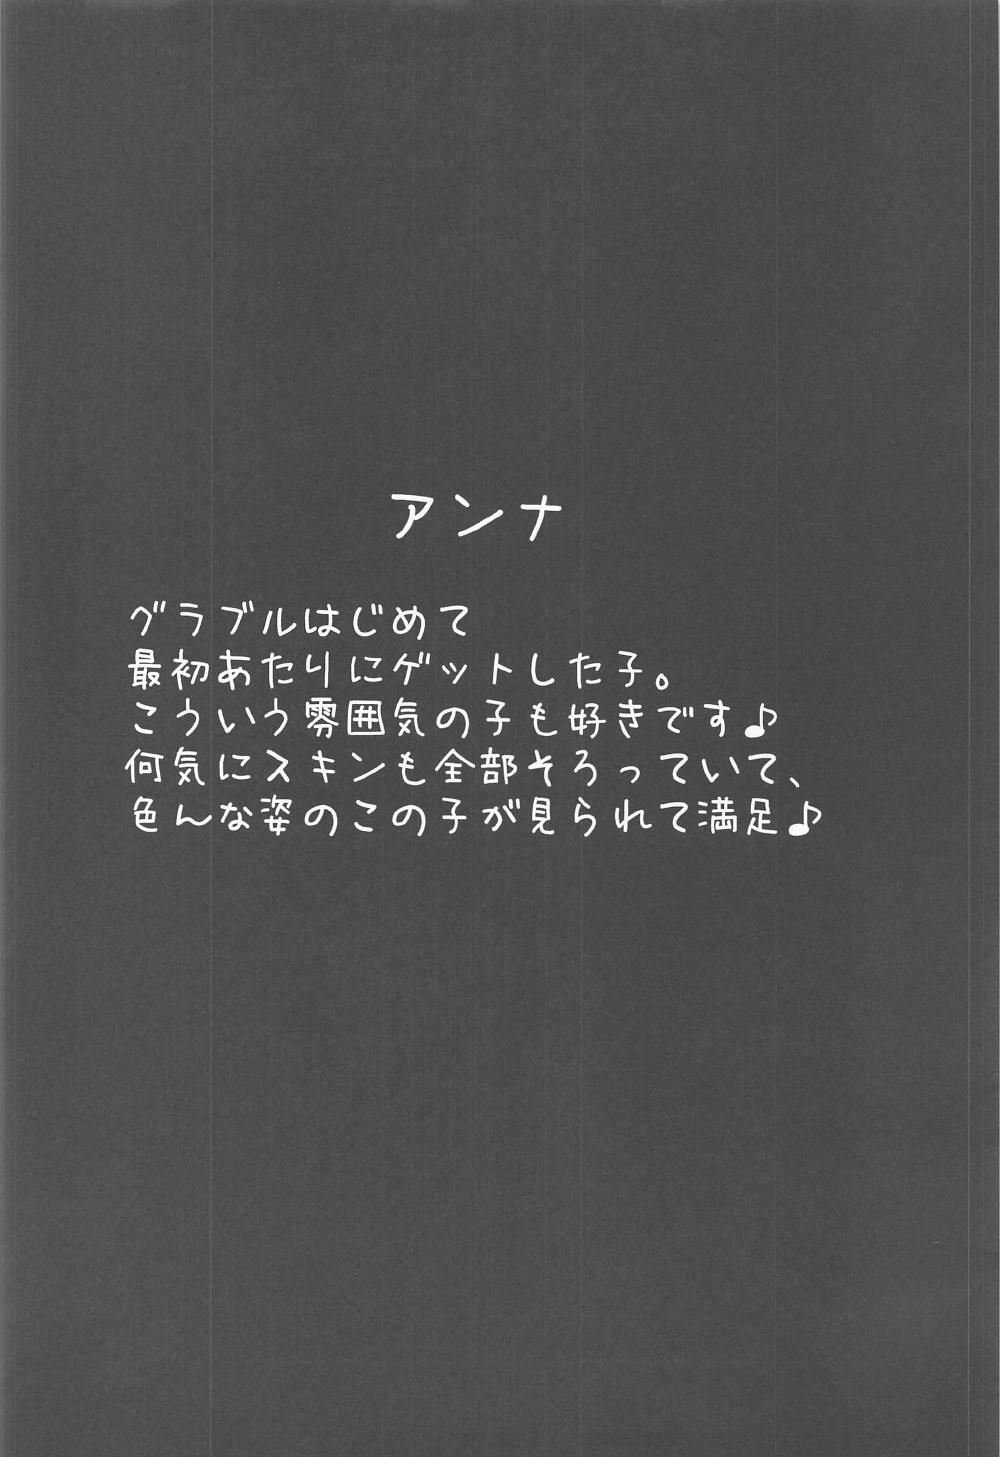 アンナ
グラブルはじめて
最初あたりにゲットした子。
こういう雰囲気の子も好きです♪
何気にスキンも全部そろっていて、
色んな姿のこの子が見られて満足♪